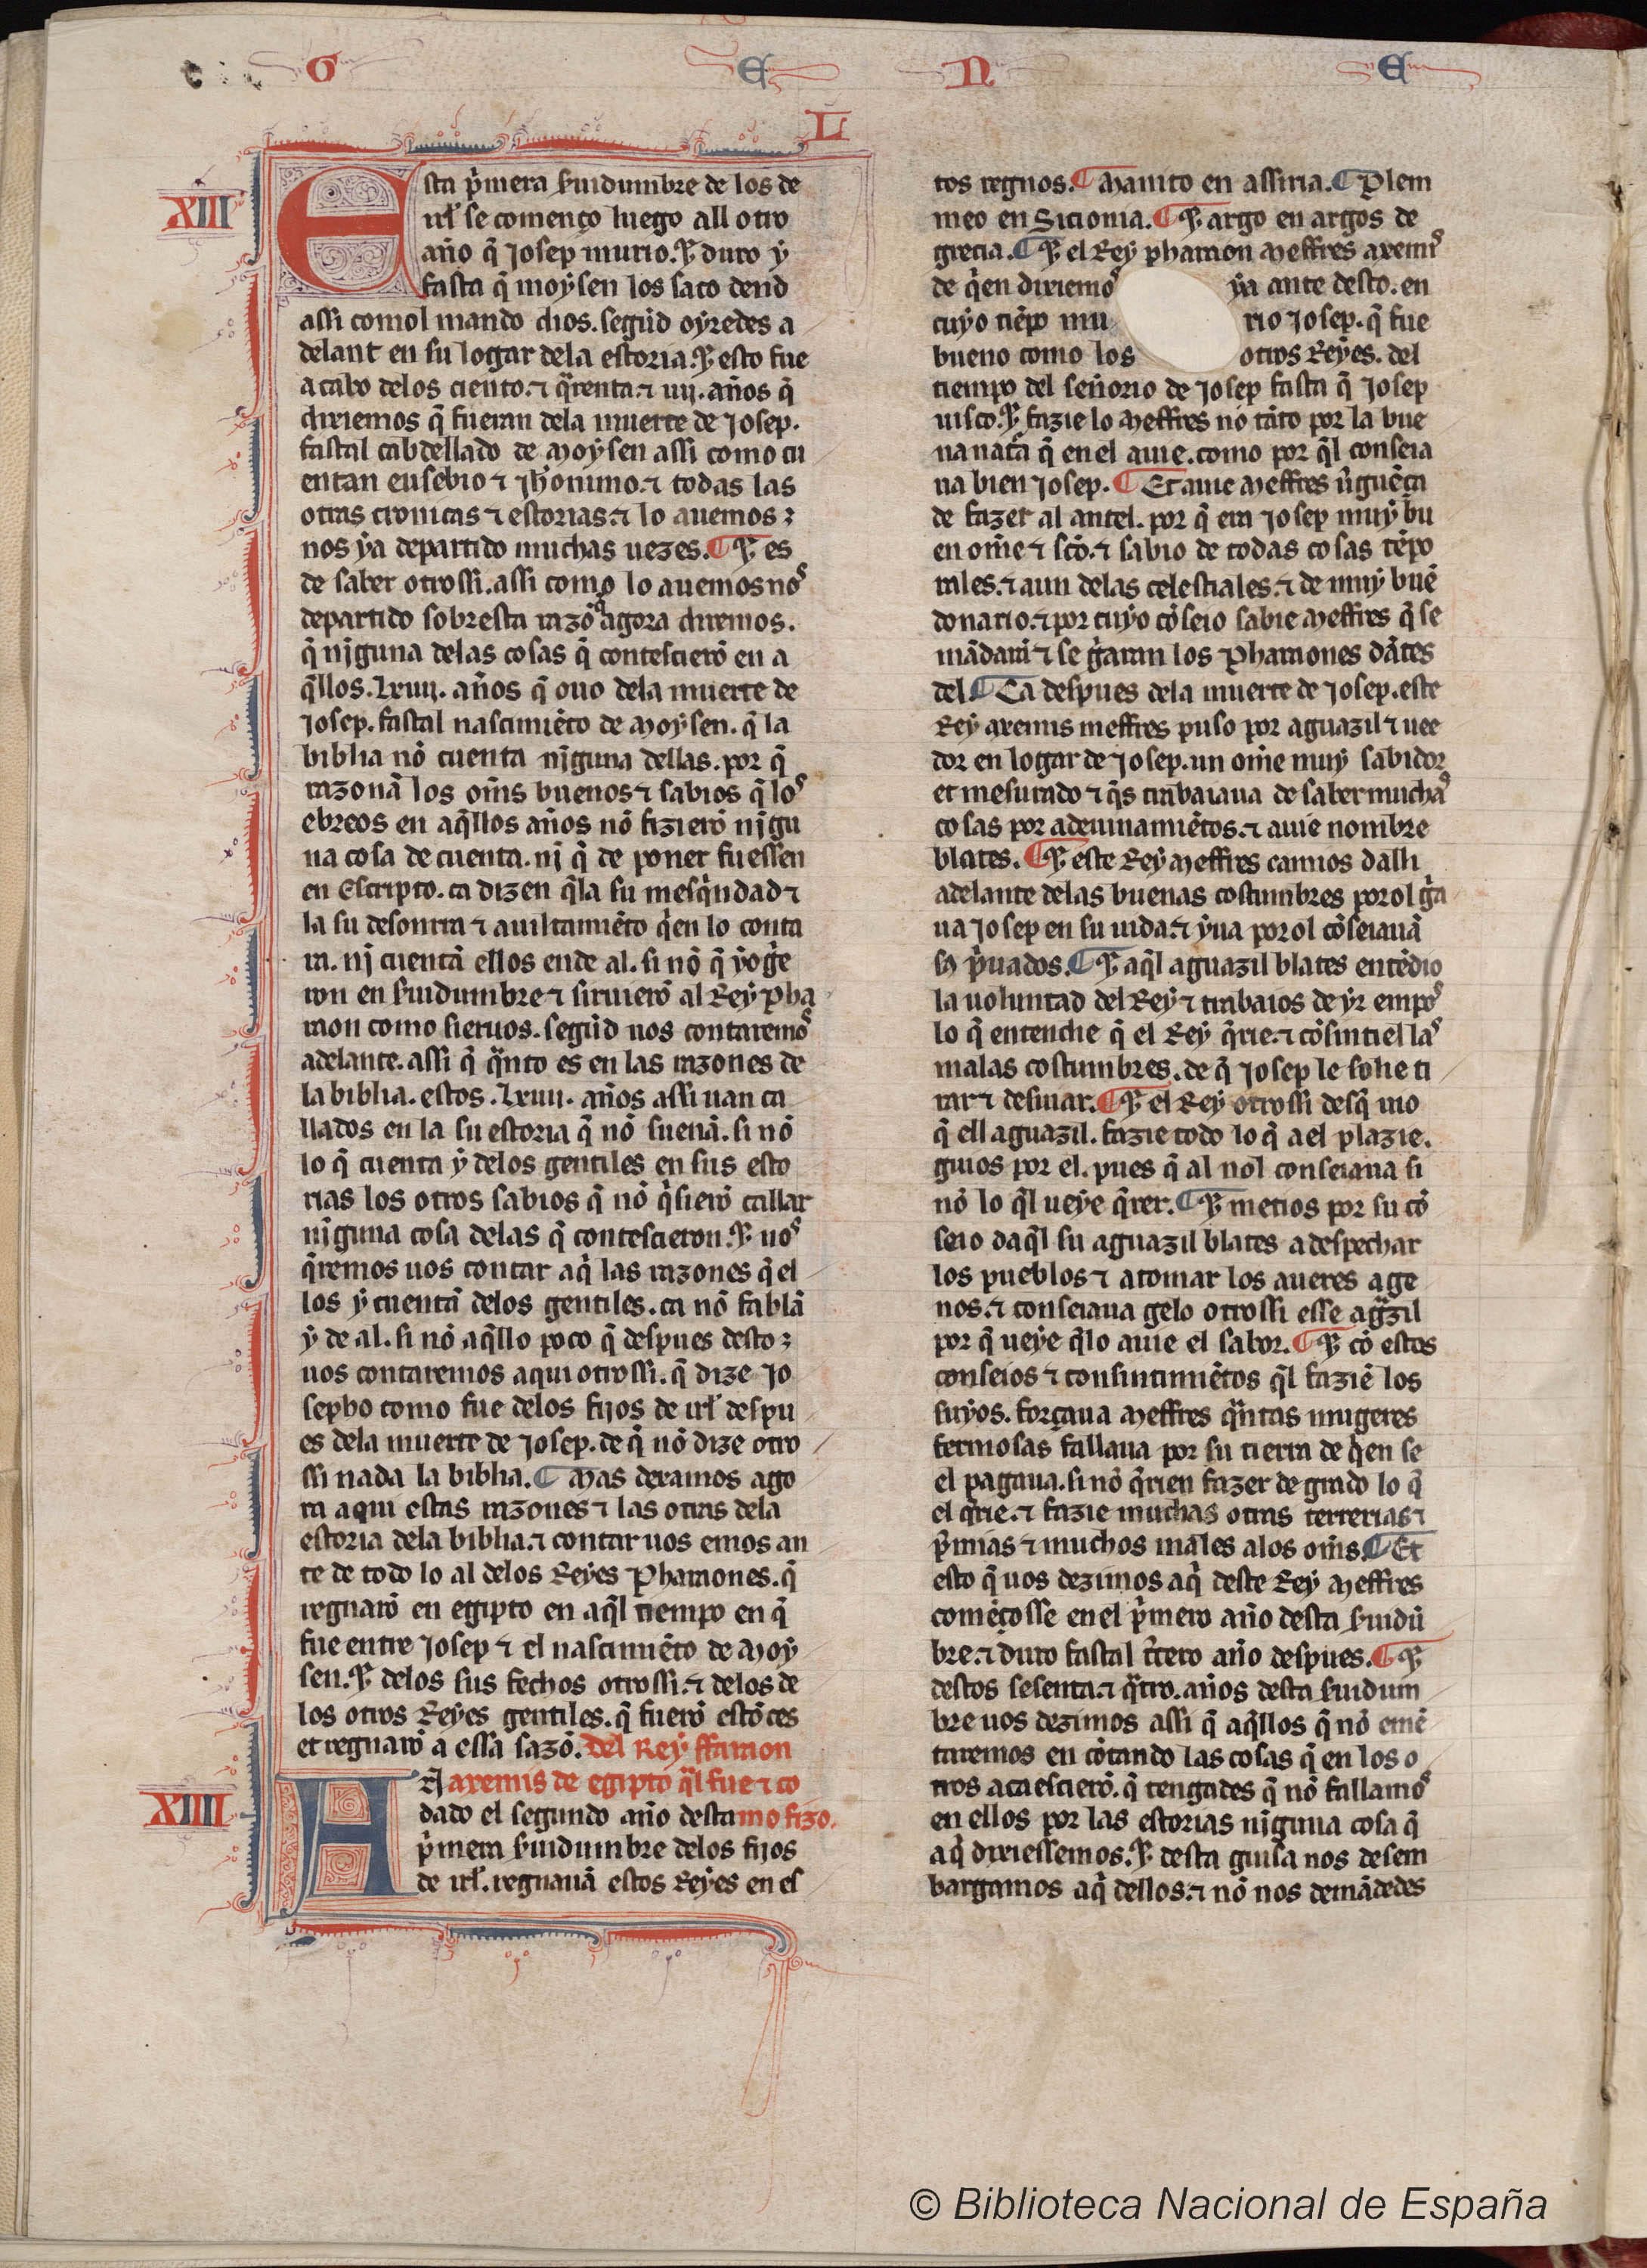 G E N E
L
XIII
Esta p̃mera ẜuidumbre de los de
irł se començo luego all otro
año q̃ Josep murio. ⁊ duro ẏ
fasta q̃ moẏsen los saco dend
assi comol mando dios. segũd oẏredes a
delant en su logar dela estoria. ⁊ esto fue
acabo delos ciento. ⁊ q̃renta. ⁊ iiij. años q̃
dixiemos q̃ fueran dela muerte de Josep.
fastal cabdellado de Moẏsen assi como cu
entan eusebio ⁊ Jh̃onimo. ⁊ todas las
otras cronicas ⁊ estorias. ⁊ lo auemos
nos ẏa departido muchas uezes. ¶ ⁊ es
de saber otrossi. assi como lo auemos nos
departido sobresta razõ q̃ agora diremos.
q̃ njguna delas cosas q̃ contescierõ en a
q̃llos. Lxiiij. años q̃ ouo dela muerte de
Josep. fastal nascimiẽto de Moẏsen. q̃ la
biblia nõ cuenta njguna dellas. por q̃
razonã los om̃s buenos ⁊ sabios q̃ los
ebreos en aq̃llos años nõ fizierõ njgu
na cosa de cuenta. nj q̃ de poner fuessen
en Escripto. ca dizen q̃la su mesq̃indad ⁊
la su desonrra ⁊ auiltamiẽto q̃en lo conta
ra. nj cuentã ellos ende al. si nõ q̃ ẏoguie
ron en ẜuidumbre ⁊ siruierõ al Reẏ Pha
raon como sieruos. segũd uos contaremos
adelante. assi q̃ q̃nto es en las razones de
la biblia. estos. Lxiiij. años assi uan ca
llados en la su estoria q̃ nõ suenã. si nõ
lo q̃ cuenta ẏ delos gentiles en sus esto
rias los otros sabios q̃ nõ q̃sierõ callar
njguna cosa delas q̃ contescieron. ⁊ nos
q̃remos uos contar aq̃ las razones q̃ el
los ẏ cuentã delos gentiles. ca nõ fablã
ẏ de al. si nõ aq̃llo poco q̃ despues desto
uos contaremos aqui otrossi. q̃ dize Jo
sepho como fue delos fijos de irł despu
es dela muerte de Josep. de q̃ nõ dize otro
ssi nada la biblia. ¶ Mas dexamos ago
ra aqui estas razones ⁊ las otras dela
estoria dela biblia. ⁊ contar uos emos an
te de todo lo al delos Reẏes Pharaones. q̃
regnarõ en egipto en aq̃l tiempo en q̃
fue entre Josep ⁊ el nascimiẽto de Moẏ
sen. ⁊ delos sus fechos otrossi. ⁊ delos de
los otros Reẏes gentiles. q̃ fuerõ estõces
et regnarõ a essa sazõ. Del Reẏ ffaraon
axemis de egipto q̃l fue ⁊ co
XIIII
Andado el segundo año desta mo fizo.
p̃mera ẜuidumbre delos fijos
de irł. regnauã estos Reẏes en es
tos regnos. ¶ Manito en assiria. ¶ Plem
meo en Sicionia. ¶ ⁊ argo en argos de
grecia. ¶ ⁊ el Reẏ pharaon Meffres axemis
de q̃en dixiemos ẏa ante desto. en
cuẏo tiẽpo mu rio Josep. q̃ fue
bueno como los otros Reẏes. del
tiempo del señorio de Josep fasta q̃ Josep
uisco. ⁊ fazie lo Meffres nõ tãto por la bue
na nat̃a q̃ en el auie. como por q̃l conseia
ua bien Josep. ¶ Et auie Meffres ũguẽça
de fazer al antel. por q̃ era Josep muẏ bu
en om̃e ⁊ sc̃o. ⁊ sabio de todas cosas tẽpo
rales. ⁊ aun delas celestiales. ⁊ de muẏ buẽ
donario. ⁊ por cuẏo cõseio sabie Meffres q̃ se
mãdarã ⁊ se g̃aran los Pharaones dãtes
del ¶ Ca despues dela muerte de Josep. este
Reẏ axemis meffres puso por aguazil ⁊ uee
dor en logar de Josep. un om̃e muẏ sabidor
et mesurado ⁊ q̃s trabaiaua de saber muchas
cosas por adeuinamiẽtos. ⁊ auie nombre
blates. ¶ ⁊ este Reẏ Meffres camios dalli
adelante delas buenas costumbres porol g̃a
ua Josep en su uida. ⁊ ẏua porol cõseiauã
sᷤ p̃uados. ¶ ⁊ aq̃l aguazil blates entẽdio
la uoluntad del Reẏ ⁊ trabaios de ẏr empos
lo q̃ entendie q̃ el Reẏ q̃rie. ⁊ cõsintiel las
malas costumbres. de q̃ Josep le solie ti
rar ⁊ desuiar. ¶ ⁊ el Reẏ otrossi desq̃ uio
q̃ ell aguazil. fazie todo lo q̃ a el plazie.
guios por el. pues q̃ al nol conseiaua si
nõ lo q̃l ueẏe q̃rer. ¶ ⁊ metios por su cõ
seio daq̃l su aguazil blates a despechar
los pueblos ⁊ a tomar los aueres age
nos. ⁊ conseiaua gelo otrossi esse ag̃zil
por q̃ ueẏe q̃lo auie el sabor. ¶ ⁊ cõ estos
conseios ⁊ consintimiẽtos q̃l faziẽ los
suẏos. forçaua Meffres q̃ntas mugeres
fermosas fallaua por su tierra de q̃en se
el pagaua. si nõ q̃rien fazer de grado lo q̃
el q̃rie. ⁊ fazie muchas otras terrerias ⁊
p̃mias ⁊ muchos males alos om̃s. ¶ Et
esto q̃ uos dezimos aq̃ deste Reẏ Meffres
comẽçosse en el p̃mero año desta ẜuidũ
bre. ⁊ duro fastal t̃cero año despues. ¶ ⁊
destos sesenta. ⁊ q̃tro. años desta ẜuidum
bre uos dezimos assi q̃ aq̃llos q̃ nõ emẽ
taremos en cõtando las cosas q̃ en los o
tros acaescierõ. q̃ tengades q̃ nõ fallamos
en ellos por las estorias njguna cosa q̃
aq̃ dixiessemos. ⁊ desta guisa nos desem
bargamos aq̃ dellos. ⁊ nõ nos demãdedes
© Biblioteca Nacional de España